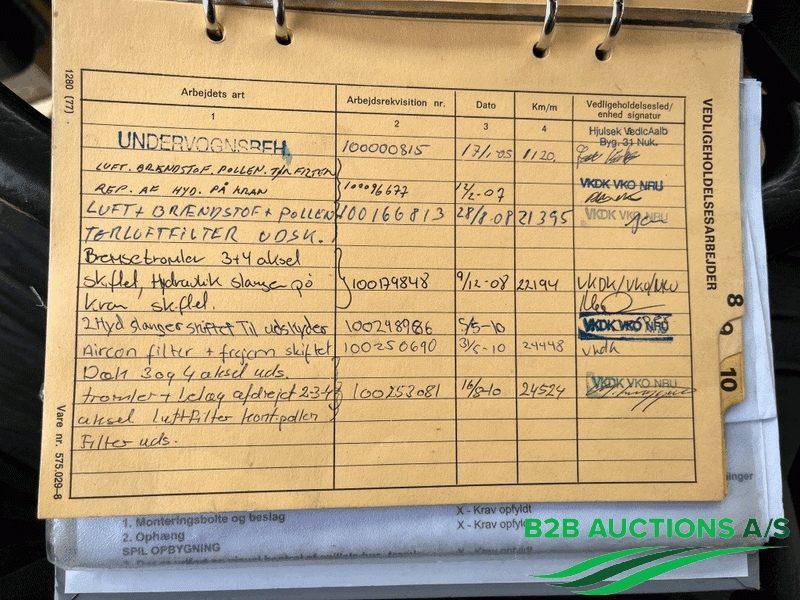 1280 (77)
Arbejdets art
Arbejdsrekvisition nr.
Dato
Km/m
Vedligeholdelsesled/
enhed signatur
1
2
3
4
UNDERVOGNSBEH
100000815
17/1-05
1120
Hjulsek VedlcAalb
Byg. 31 Nuk.
LUFT. BRÆNDSTOF. POLLEN.
REP. AF HYD. PÅ KRAN
100096677
12/2-07
VKDK VKO NRU
LUFT + BRÆNDSTOF + POLLEN
100166813
28/8-08
21395
VKDK VKO NRU
TERLUFTFILTER UDSK.
Bremsetromler 3+4 aksel
skiflet, Hydraulik slanger på
100179848
9/12-08
22194
VKDK/VKO/NRU
Kran skiflet.
2 Hyd slanger skiftet Til udskyder
100248986
5/5-10
VKDK VKO NRU
Aircon filter + frejam skiftet
100250690
31/5-10
24448
Vkdk
Dæk 3 og 4 aksel uds.
tromler + belæg afdrejet 2-3-4
100253081
16/8-10
24524
VKDK VKO NRU
aksel luftfilter kont. pollen
Filter uds.
VEDLIGEHOLDELSESARBEJDER
8
9
10
Vare nr. 575.029-8
1. Monteringsbolte og beslag
X - Krav opfyldt
2. Ophæng
X - Krav
SPIL OPBYGNING
B2B AUCTIONS A/S